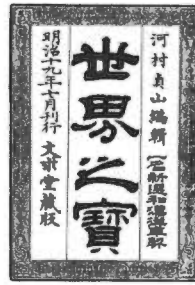 河村貞山編輯 一名新選和漢
世界之寶
明治十九年七月刊行 文求堂藏版